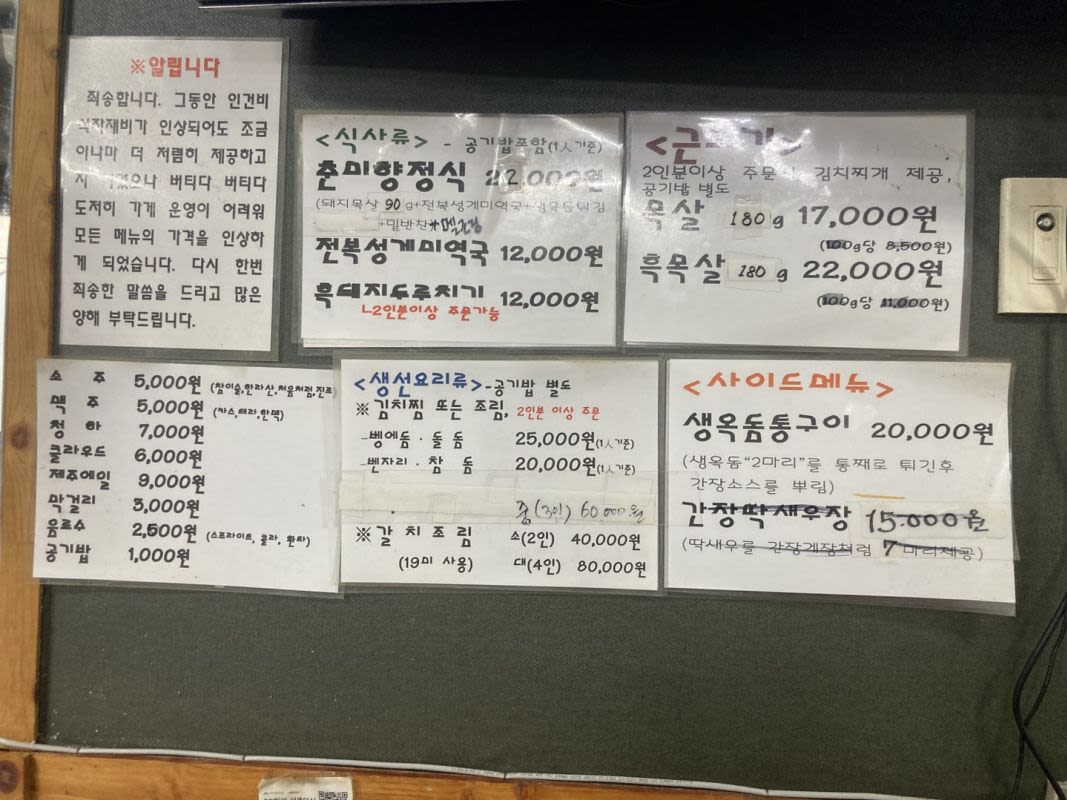 ※알립니다
죄송합니다. 그동안 인건비
식자재비가 인상되어도 조금
이나마 더 저렴히 제공하고
버티다 버티다
도저히 가게 운영이 어려워
모든 메뉴의 가격을 인상하
게 되었습니다. 다시 한번
죄송한 말씀을 드리고 많은
양해 부탁드립니다.
<식사류> - 공기밥포함(1人기준)
춘미향정식 22,000원
(돼지목살 90g+전복성게미역국+생옥돔튀김
+밑반찬
전복성게미역국 12,000원
흑돼지두루치기 12,000원
ㄴ2인분이상 주문가능
<근고기>
2인분이상 주문시 김치찌개 제공,
공기밥 별도
목살 180g 17,000원
(100g당 8,500원)
흑목살 180g 22,000원
(100g당 11,000원)
소주 5,000원 (참이슬,한라산,처음처럼,진로
맥주 5,000원 (카스,테라,한맥)
청하 7,000원
클라우드 6,000원
제주에일 9,000원
막걸리 3,000원
음료수 2,500원 (스프라이트, 콜라, 환타)
공기밥 1,000원
<생선요리류>-공기밥 별도
※김치찜 또는 조림, 2인분 이상 주문
-벵에돔·돌돔 25,000원(1人기준)
-벤자리·참돔 20,000원(1人기준)
중(3인) 60,000원
※갈치조림 소(2인) 40,000원
(19미 사용) 대(4인) 80,000원
<사이드메뉴>
생옥돔통구이 20,000원
(생옥돔"2마리"를 통째로 튀긴후
간장소스를 뿌림)
간장딱새우장 15,000원
(딱새우를 간장게장처럼 7마리제공)